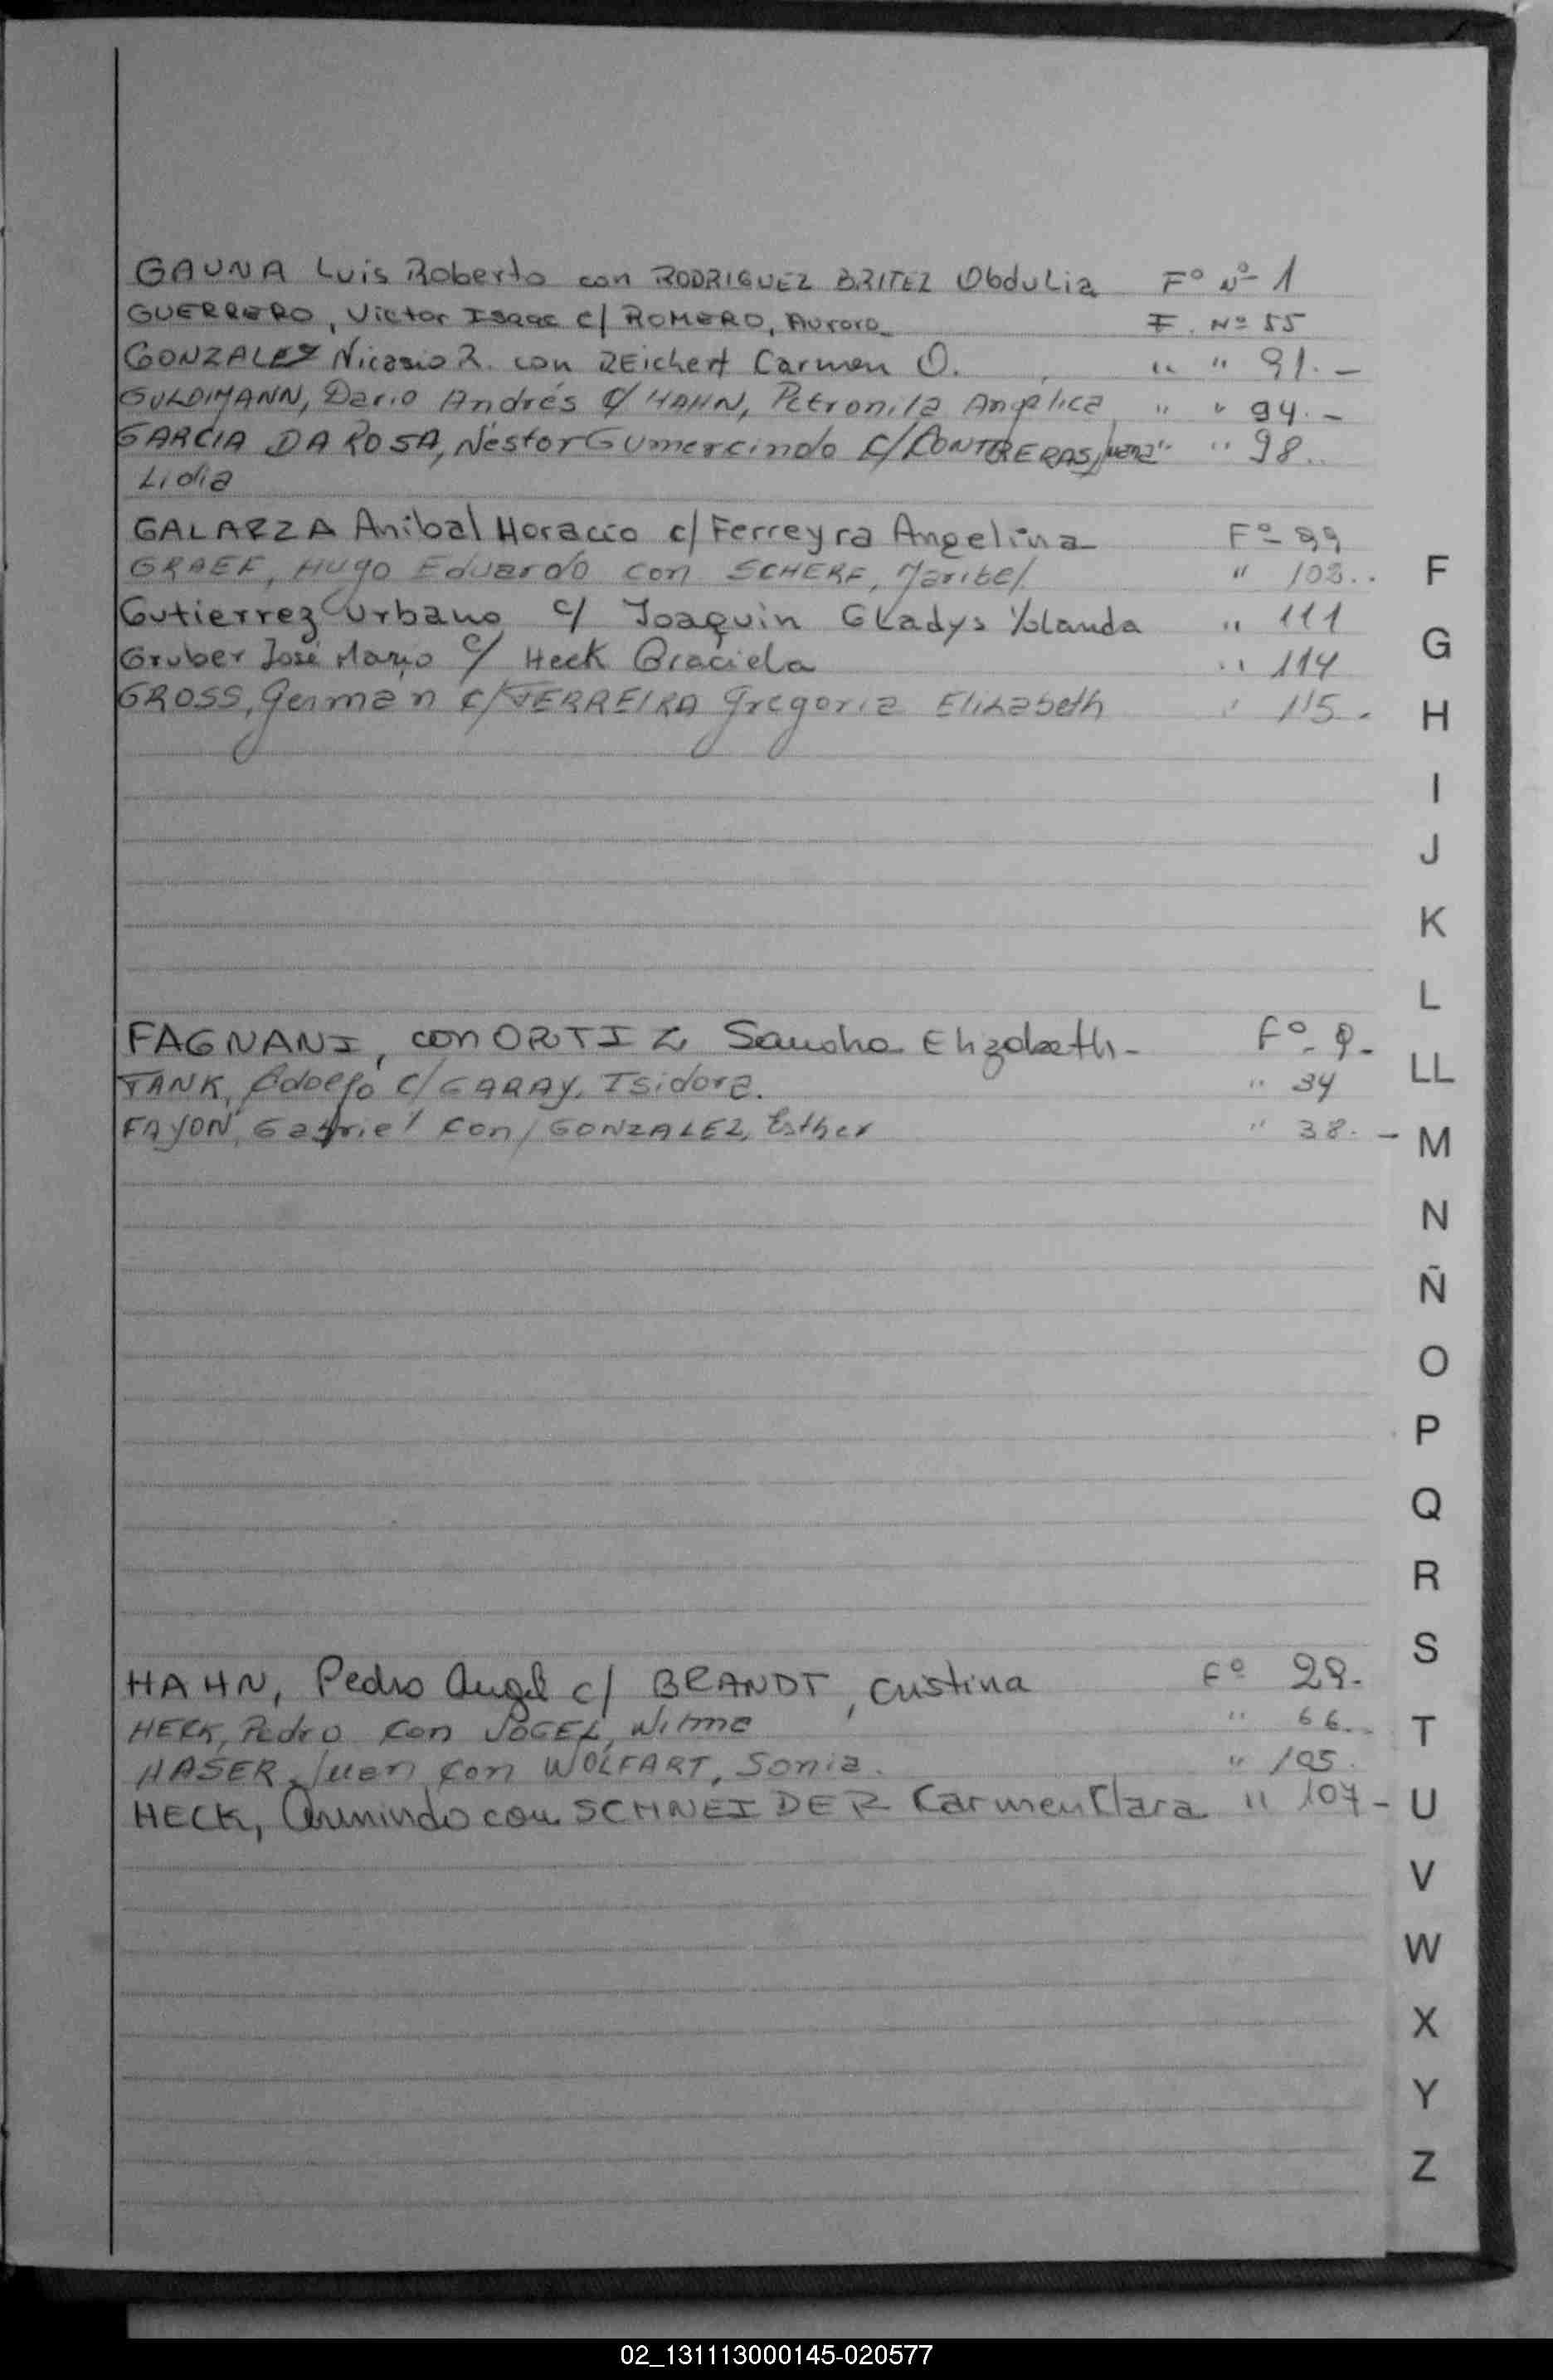 GAUNA Luis Roberto con RODRIGUEZ BRITEZ Obdulia Fº Nº 1
GUERRERO, Victor Isaac c/ ROMERO, Aurora F. Nº 55
GONZALEZ Nicasio R. con REichert Carmen O. " " 91.-
GULDIMANN, Dario Andrés c/ HAHN, Petronila Angelica " " 94.-
GARCIA DA ROSA, Néstor Gumercindo c/ CONTRERAS, Juana " " 98..
Lidia
GALARZA Anibal Horacio c/ Ferreyra Angelina Fº 99
GRAEF, Hugo Eduardo con SCHERF, Maribel " 103..
Gutierrez Urbano c/ Joaquin Gladys Yolanda " 111
Gruber José Mario c/ Heck Graciela " 114
GROSS, German c/ FERREIRA Gregoria Elizabeth " 115.
FAGNANI, con ORTIZ Elizabeth- Fº 9.
TANK, Adolfo c/ GARAY, Isidora. " 34
FAYON, Gabriel con/ GONZALEZ, Esther " 38.-
HAHN, Pedro Angel c/ BRANDT, Cristina Fº 29.
HECK, Pedro con VOGEL, Wilma " 66..
HASER, Juan con WOLFART, Sonia. " 105.
HECK, Armindo con SCHNEIDER Carmen Clara " 107-
F
G
H
I
J
K
L
LL
M
N
Ñ
O
P
Q
R
S
T
U
V
W
X
Y
Z
02_131113000145-020577